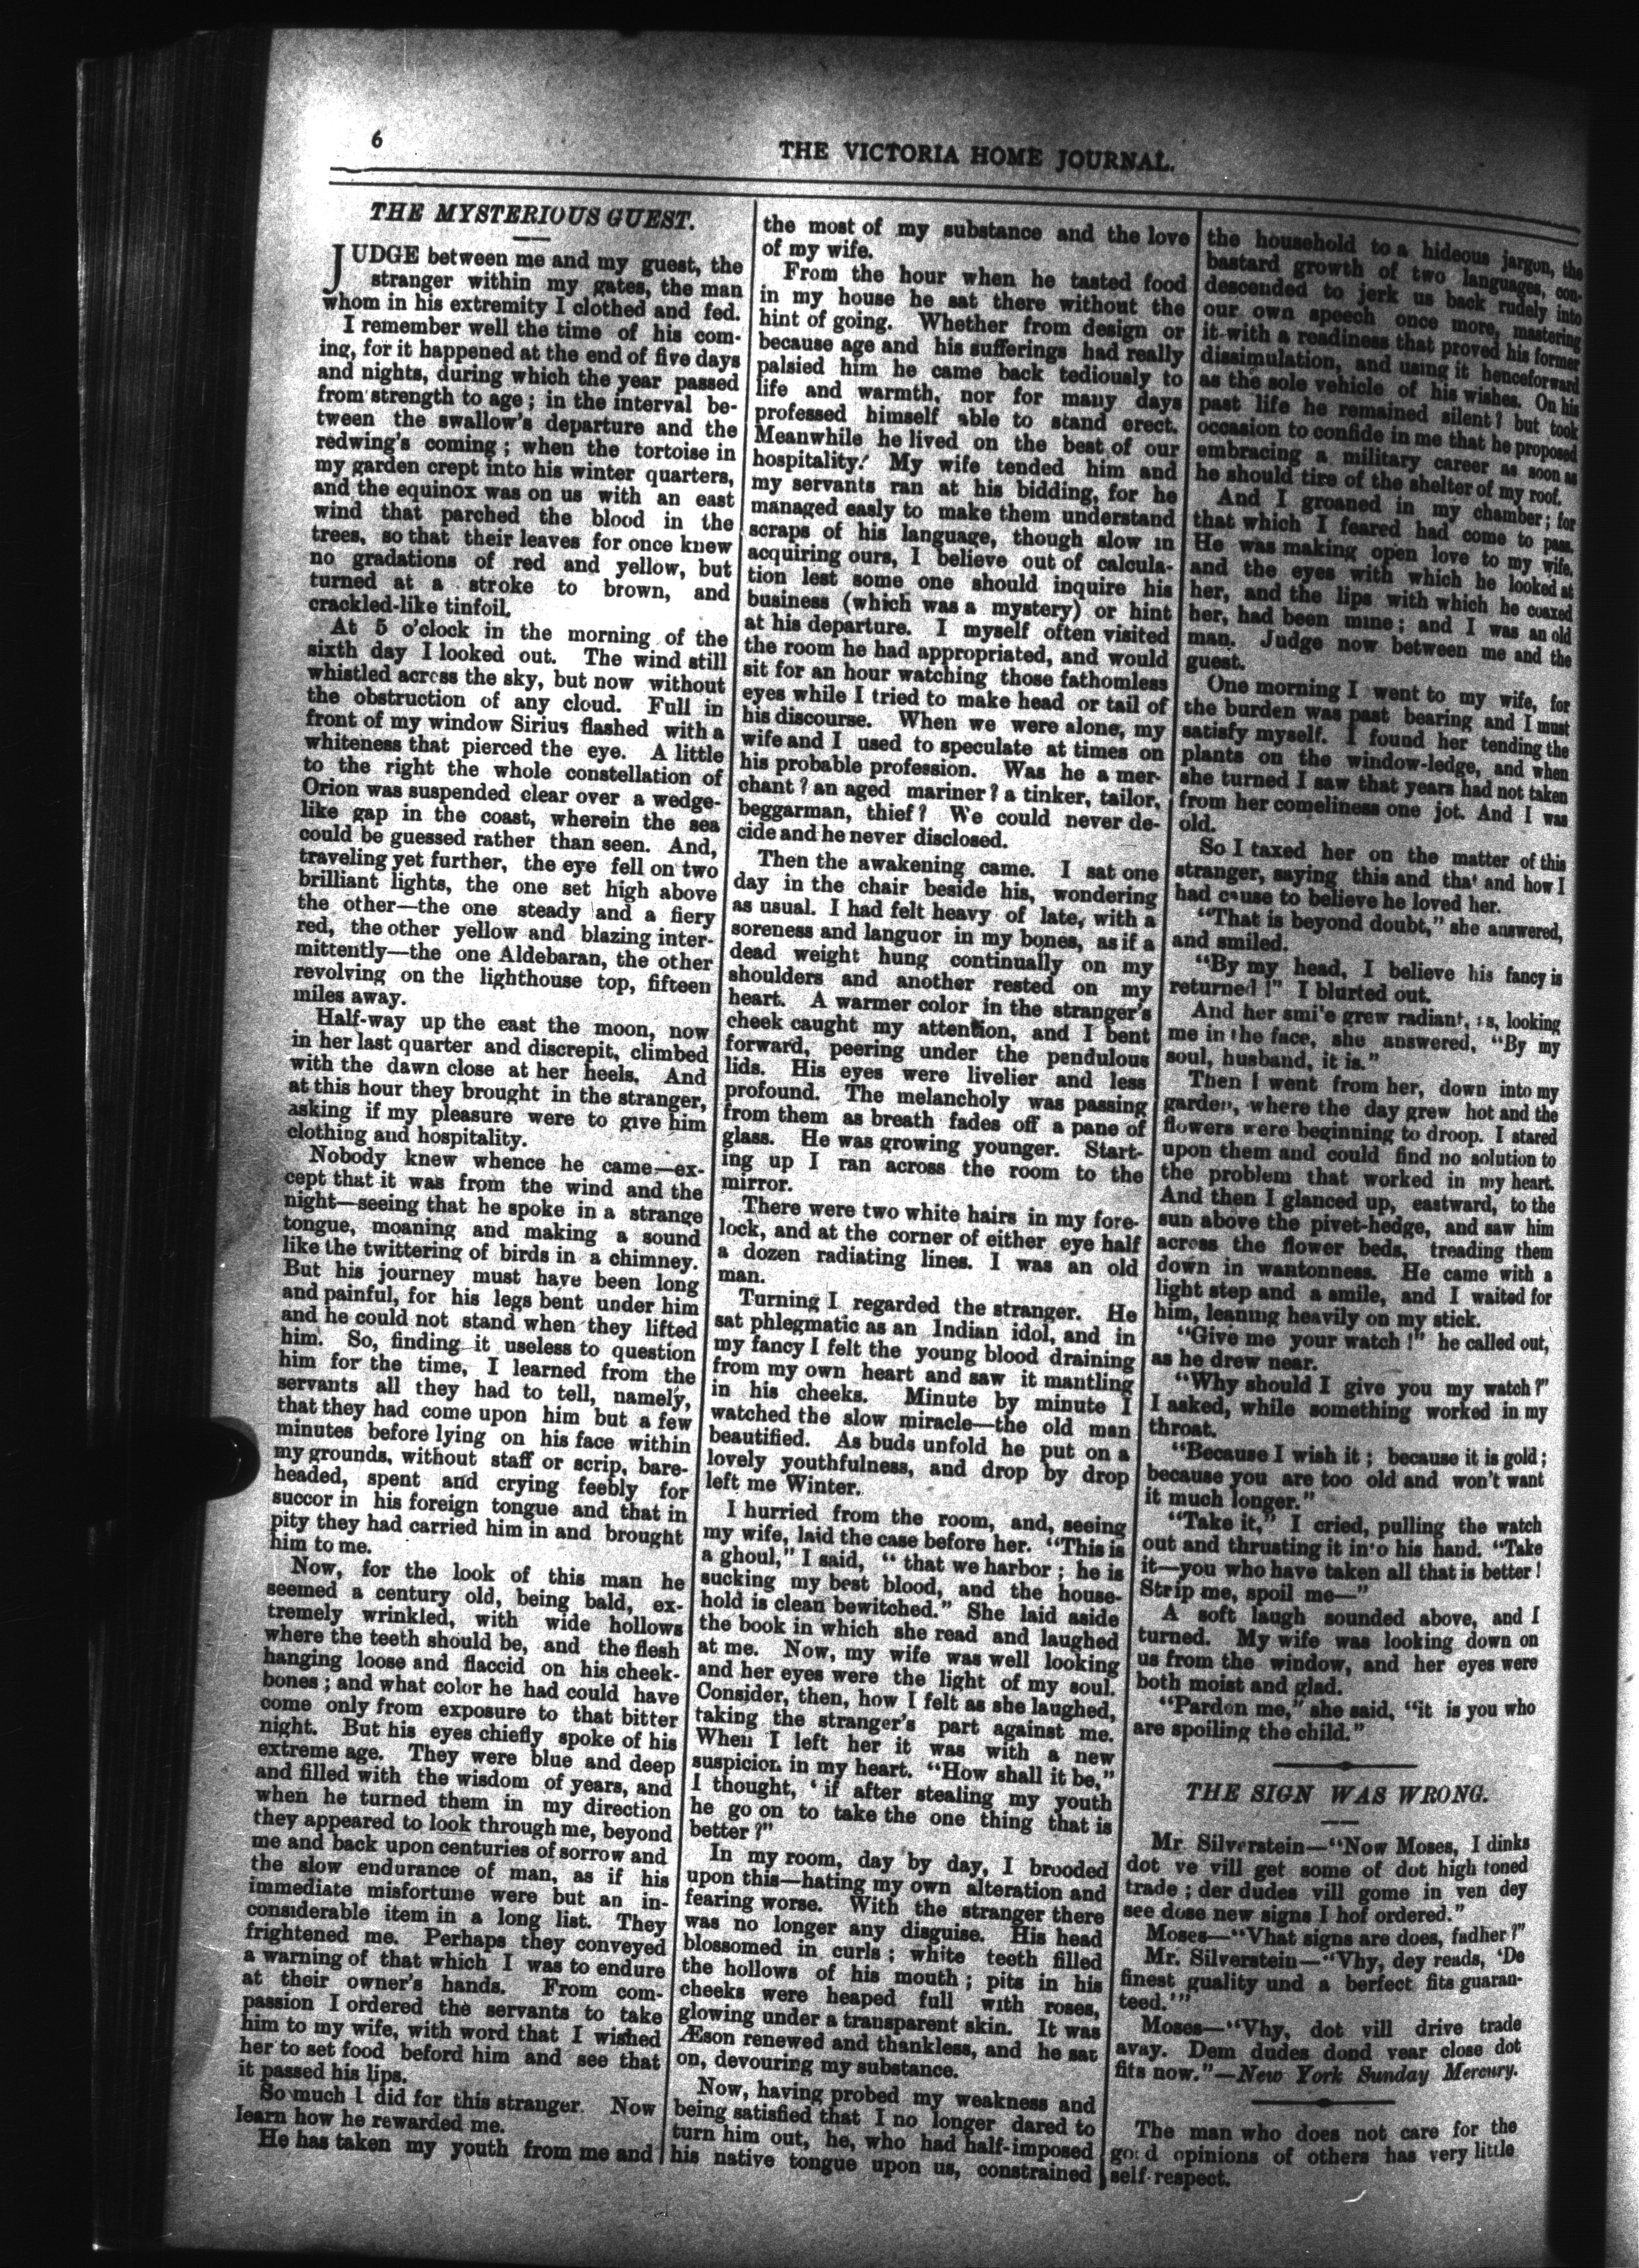 6
THE VICTORIA HOME JOURNAL.
THE MYSTERIOUS GUEST.
JUDGE between me and my guest, the
stranger within my gates, the man
whom in his extremity I clothed and fed.
I remember well the time of his com-
ing, for it happened at the end of five days
and nights, during which the year passed
from strength to age; in the interval be-
tween the swallow's departure and the
redwing's coming; when the tortoise in
my garden crept into his winter quarters,
and the equinox was on us with an east
wind that parched the blood in the
trees, so that their leaves for once knew
no gradations of red and yellow, but
turned at a stroke to brown, and
crackled-like tinfoil.
At 5 o'clock in the morning of the
sixth day I looked out. The wind still
whistled across the sky, but now without
the obstruction of any cloud. Full in
front of my window Sirius flashed with a
whiteness that pierced the eye. A little
to the right the whole constellation of
Orion was suspended clear over a wedge-
like gap in the coast, wherein the sea
could be guessed rather than seen. And,
traveling yet further, the eye fell on two
brilliant lights, the one set high above
the other—the one steady and a fiery
red, the other yellow and blazing inter-
mittently—the one Aldebaran, the other
revolving on the lighthouse top, fifteen
miles away.
Half-way up the east the moon, now
in her last quarter and discrepit, climbed
with the dawn close at her heels. And
at this hour they brought in the stranger,
asking if my pleasure were to give him
clothing and hospitality.
Nobody knew whence he came—ex-
cept that it was from the wind and the
night—seeing that he spoke in a strange
tongue, moaning and making a sound
like the twittering of birds in a chimney.
But his journey must have been long
and painful, for his legs bent under him
and he could not stand when they lifted
him. So, finding it useless to question
him for the time, I learned from the
servants all they had to tell, namely,
that they had come upon him but a few
minutes before lying on his face within
my grounds, without staff or scrip, bare-
headed, spent and crying feebly for
succor in his foreign tongue and that in
pity they had carried him in and brought
him to me.
Now, for the look of this man he
seemed a century old, being bald, ex-
tremely wrinkled, with wide hollows
where the teeth should be, and the flesh
hanging loose and flaccid on his cheek-
bones; and what color he had could have
come only from exposure to that bitter
night. But his eyes chiefly spoke of his
extreme age. They were blue and deep
and filled with the wisdom of years, and
when he turned them in my direction
they appeared to look through me, beyond
me and back upon centuries of sorrow and
the slow endurance of man, as if his
immediate misfortune were but an in-
considerable item in a long list. They
frightened me. Perhaps they conveyed
a warning of that which I was to endure
at their owner's hands. From com-
passion I ordered the servants to take
him to my wife, with word that I wished
her to set food beford him and see that
it passed his lips.
So much I did for this stranger. Now
learn how he rewarded me.
He has taken my youth from me and
the most of my substance and the love
of my wife.
From the hour when he tasted food
in my house he sat there without the
hint of going. Whether from design or
because age and his sufferings had really
palsied him he came back tediously to
life and warmth, nor for many days
professed himself able to stand erect.
Meanwhile he lived on the best of our
hospitality. My wife tended him and
my servants ran at his bidding, for he
managed easly to make them understand
scraps of his language, though slow in
acquiring ours, I believe out of calcula-
tion lest some one should inquire his
business (which was a mystery) or hint
at his departure. I myself often visited
the room he had appropriated, and would
sit for an hour watching those fathomless
eyes while I tried to make head or tail of
his discourse. When we were alone, my
wife and I used to speculate at times on
his probable profession. Was he a mer-
chant? an aged mariner? a tinker, tailor,
beggarman, thief? We could never de-
cide and he never disclosed.
Then the awakening came. I sat one
day in the chair beside his, wondering
as usual. I had felt heavy of late, with a
soreness and languor in my bones, as if a
dead weight hung continually on my
shoulders and another rested on my
heart. A warmer color in the stranger's
cheek caught my attention, and I bent
forward, peering under the pendulous
lids. His eyes were livelier and less
profound. The melancholy was passing
from them as breath fades off a pane of
glass. He was growing younger. Start-
ing up I ran across the room to the
mirror.
There were two white hairs in my fore-
lock, and at the corner of either eye half
a dozen radiating lines. I was an old
man.
Turning I regarded the stranger. He
sat phlegmatic as an Indian idol, and in
my fancy I felt the young blood draining
from my own heart and saw it mantling
in his cheeks. Minute by minute I
watched the slow miracle—the old man
beautified. As buds unfold he put on a
lovely youthfulness, and drop by drop
left me Winter.
I hurried from the room, and, seeing
my wife, laid the case before her. "This is
a ghoul," I said, " that we harbor; he is
sucking my best blood, and the house-
hold is clean bewitched." She laid aside
the book in which she read and laughed
at me. Now, my wife was well looking
and her eyes were the light of my soul.
Consider, then, how I felt as she laughed,
taking the stranger's part against me.
When I left her it was with a new
suspicion in my heart. "How shall it be,"
I thought, ' if after stealing my youth
he go on to take the one thing that is
better?"
In my room, day by day, I brooded
upon this—hating my own alteration and
fearing worse. With the stranger there
was no longer any disguise. His head
blossomed in curls; white teeth filled
the hollows of his mouth; pits in his
cheeks were heaped full with roses,
glowing under a transparent skin. It was
Æson renewed and thankless, and he sat
on, devouring my substance.
Now, having probed my weakness and
being satisfied that I no longer dared to
turn him out, he, who had half-imposed
his native tongue upon us, constrained
the household to a hideous jargon, the
bastard growth of two languages, con-
descended to jerk us back rudely into
our own speech once more, mastering
it with a readiness that proved his former
dissimulation, and using it henceforward
as the sole vehicle of his wishes. On his
past life he remained silent? but took
occasion to confide in me that he proposed
embracing a military career as soon as
he should tire of the shelter of my roof.
And I groaned in my chamber; for
that which I feared had come to pass.
He was making open love to my wife,
and the eyes with which he looked at
her, and the lips with which he coaxed
her, had been mine; and I was an old
man. Judge now between me and the
guest.
One morning I went to my wife, for
the burden was past bearing and I must
satisfy myself. I found her tending the
plants on the window-ledge, and when
she turned I saw that years had not taken
from her comeliness one jot. And I was
old.
So I taxed her on the matter of this
stranger, saying this and that and how I
had cause to believe he loved her.
"That is beyond doubt," she answered,
and smiled.
"By my head, I believe his fancy is
returned!" I blurted out.
And her smile grew radiant, as, looking
me in the face, she answered, "By my
soul, husband, it is."
Then I went from her, down into my
garden, where the day grew hot and the
flowers were beginning to droop. I stared
upon them and could find no solution to
the problem that worked in my heart.
And then I glanced up, eastward, to the
sun above the pivet-hedge, and saw him
across the flower beds, treading them
down in wantonness. He came with a
light step and a smile, and I waited for
him, leaning heavily on my stick.
"Give me your watch!" he called out,
as he drew near.
"Why should I give you my watch?"
I asked, while something worked in my
throat.
"Because I wish it; because it is gold;
because you are too old and won't want
it much longer."
"Take it," I cried, pulling the watch
out and thrusting it into his hand. "Take
it—you who have taken all that is better!
Strip me, spoil me—"
A soft laugh sounded above, and I
turned. My wife was looking down on
us from the window, and her eyes were
both moist and glad.
"Pardon me," she said, "it is you who
are spoiling the child."
THE SIGN WAS WRONG.
Mr. Silverstein—"Now Moses, I dinks
dot ve vill get some of dot high toned
trade; der dudes vill gome in ven dey
see dose new signs I hof ordered."
Moses—"Vhat signs are does, fadher?"
Mr. Silverstein—"Vhy, dey reads, 'De
finest guality und a berfect fits guaran-
teed.'"
Moses—"Vhy, dot vill drive trade
avay. Dem dudes dond vear close dot
fits now."—New York Sunday Mercury.
The man who does not care for the
good opinions of others has very little
self-respect.